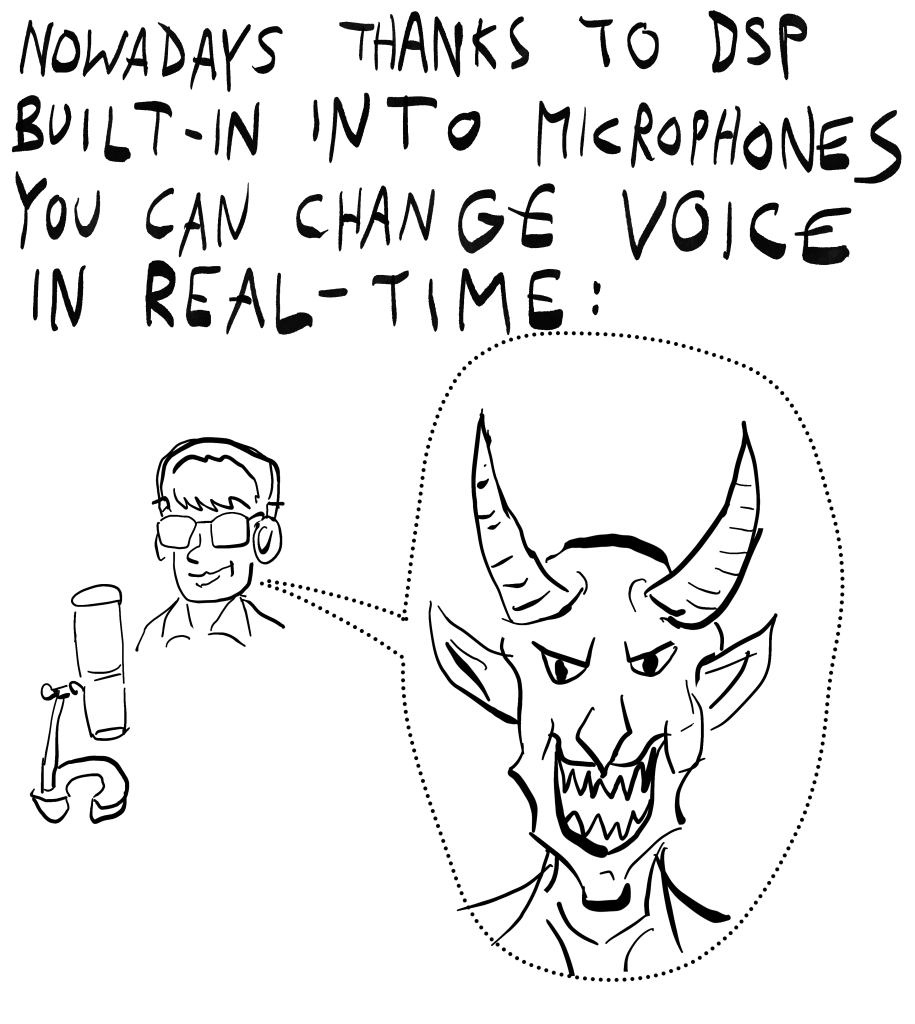 NOWADAYS THANKS TO DSP
BUILT-IN INTO MICROPHONES
YOU CAN CHANGE VOICE
IN REAL-TIME: